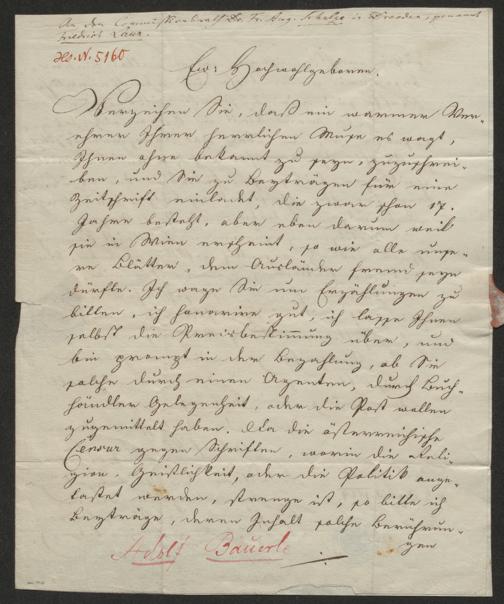 An den Commissionsrath Dr. Fr. Aug. Schulze in Dresden, genannt
Friedrich Laun.
Hs. N. 5160
Ew: Hochwohlgeboren.
Verzeihen Sie, daß ein warmer Ver-
ehrer Ihrer herrlichen Muse es wagt,
Ihnen ohne bekannt zu seyn, zuzuschrei-
ben, und Sie zu Beyträgen für eine
Zeitschrift einladet, die zwar schon 17.
Jahre besteht, aber eben darum weil
sie in Wien erscheint, so wie alle unse-
re Blätter, dem Ausländer fremd seyn
dürfte. Ich wage Sie um Erzählungen zu
bitten, ich honorire gut, ich lasse Ihnen
selbst die Preisbestimmung über, und
bin prompt in der Bezahlung, ob Sie
solche durch einen Agenten, durch Buch-
händler Gelegenheit, oder die Post wollen
zugemittelt haben. Da die österreichische
Censur gegen Schriften, worin die Reli-
gion, Geistlichkeit, oder die Politik ange-
tastet werden, strenge ist, so bitte ich
Beyträge, deren Inhalt solche Berührun-
gen
Adolf Bäuerle